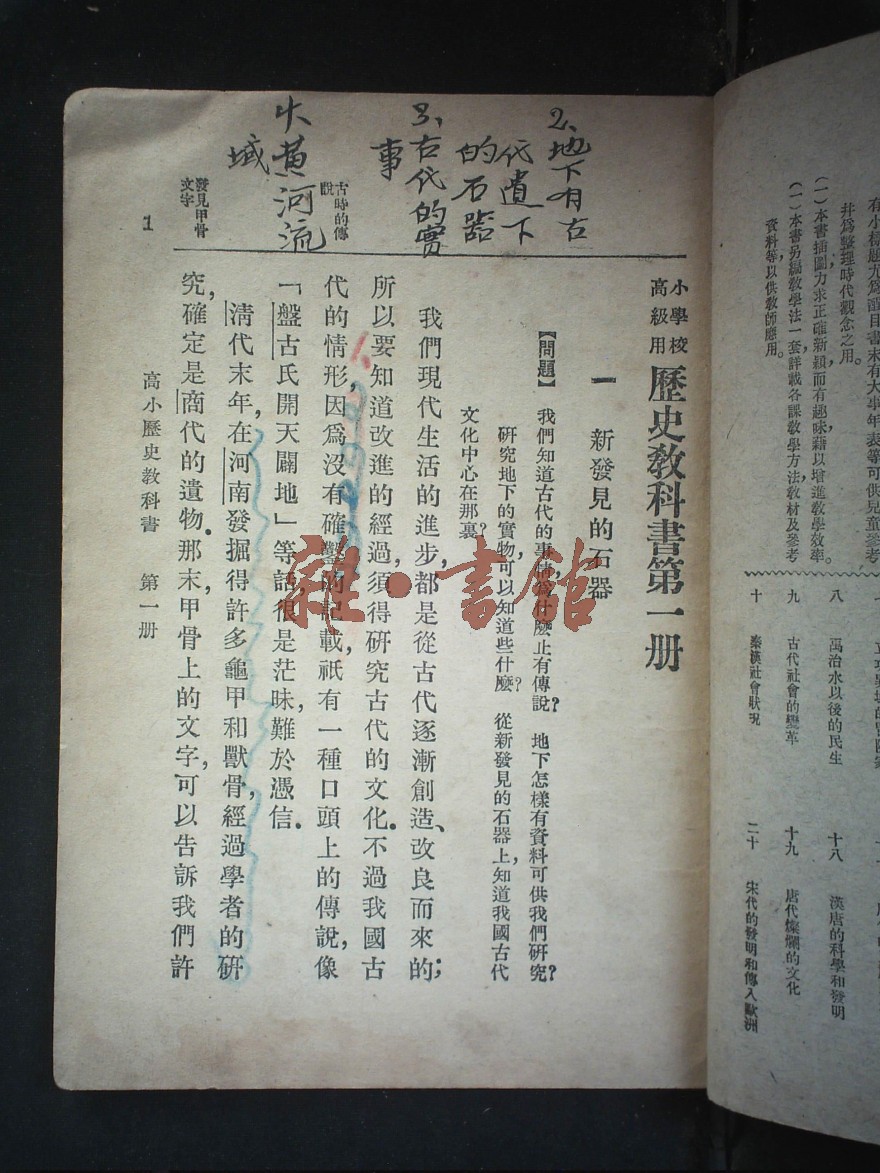 有小標題尤爲醒目書末有大事年表等可供兒童參考
幷爲整理時代觀念之用。
(一)本書插圖力求正確新穎而有趣味藉以增進敎學效率。
(一)本書另編敎學法一套詳載各課敎學方法敎材及參考
資料等以供敎師應用。
八 禹治水以後的民生
九 古代社會的變革
十 秦漢社會狀況
十八 漢唐的科學和發明
十九 唐代燦爛的文化
二十 宋代的發明和傳入歐洲
2、地下有古
代遺下
的石器
3、古代的實
事
4、黃河流
域
小學校
高級用
歷史敎科書第一册
一 新發見的石器
【問題】 我們知道古代的事情,爲什麼止有傳說? 地下怎樣有資料可供我們硏究?
硏究地下的實物,可以知道些什麼? 從新發見的石器上,知道我國古代
文化中心在那裏?
我們現代生活的進步,都是從古代逐漸創造、改良而來的;
所以要知道改進的經過,須得硏究古代的文化。不過我國古
代的情形,因爲沒有確鑿的記載,祇有一種口頭上的傳說,像
「盤古氏開天闢地」等話,很是茫昧,難於憑信。
淸代末年,在河南發掘得許多龜甲和獸骨,經過學者的硏
究,確定是商代的遺物。那末,甲骨上的文字,可以告訴我們許
古時的傳
說
發見甲骨
文字
高小歷史敎科書 第一册
1
雜·書館